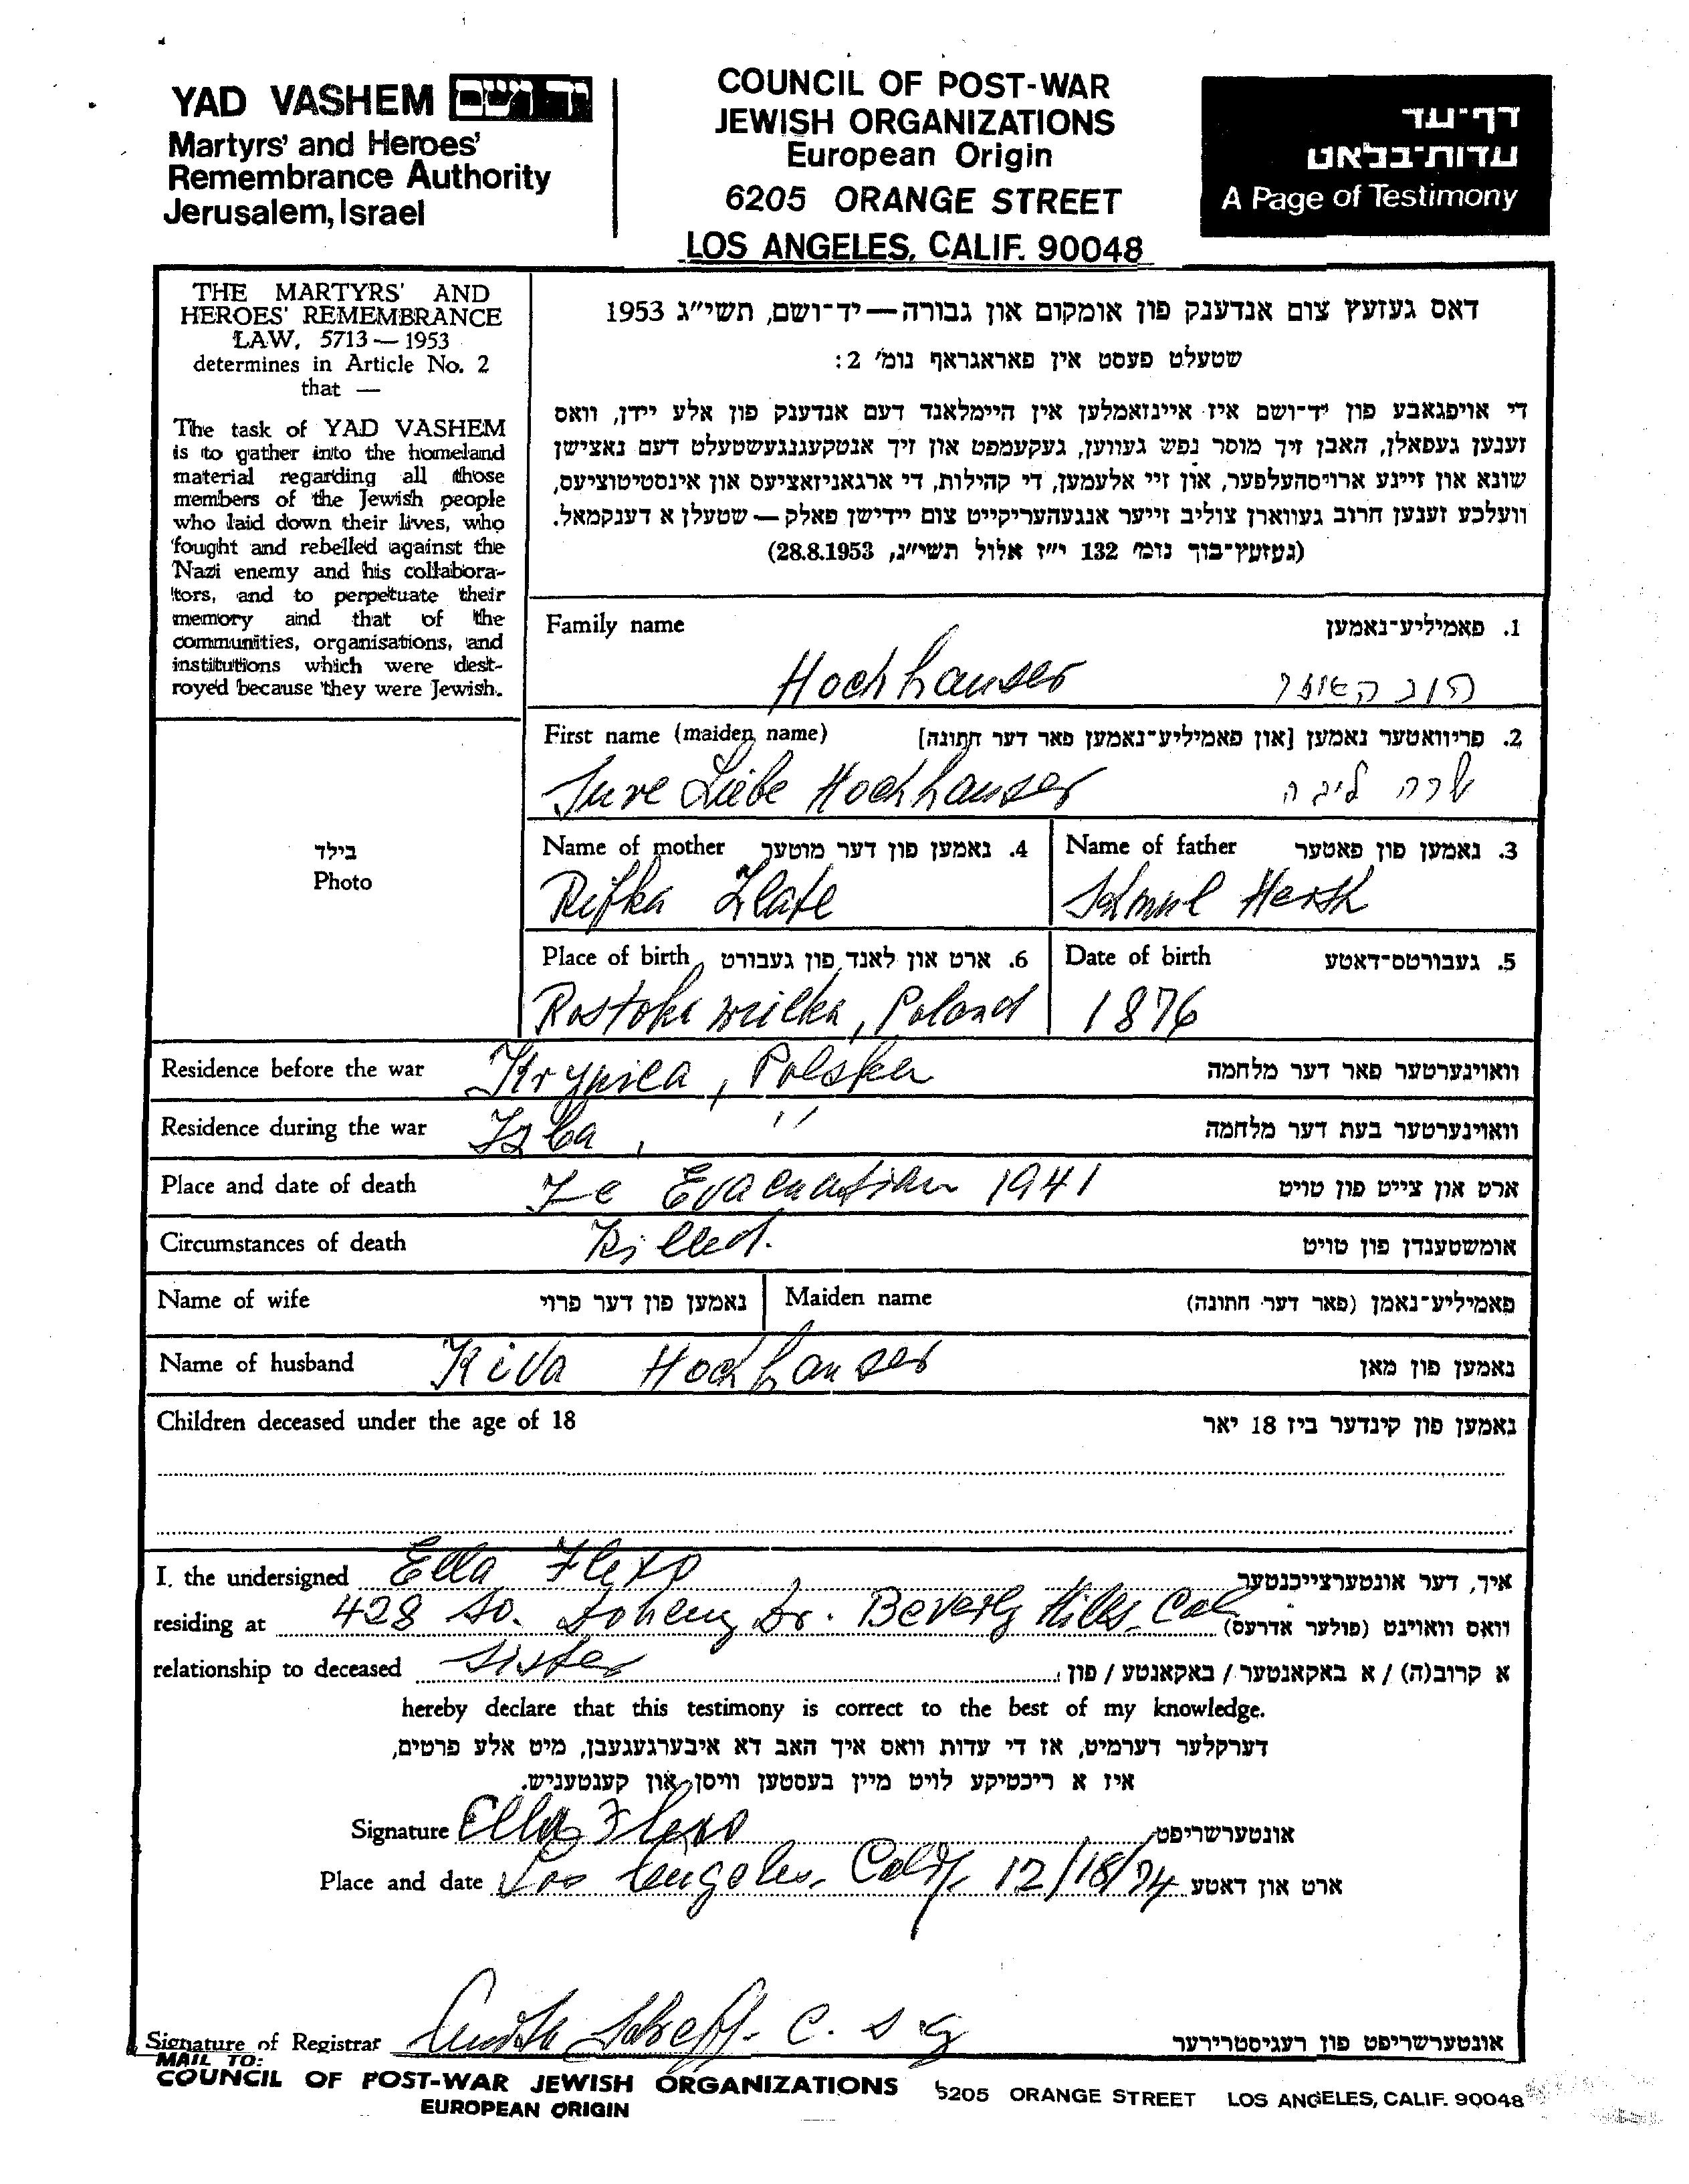 YAD VASHEM יד ושם
Martyrs' and Heroes'
Remembrance Authority
Jerusalem, Israel
COUNCIL OF POST-WAR
JEWISH ORGANIZATIONS
European Origin
6205 ORANGE STREET
LOS ANGELES, CALIF. 90048
דף-עד
עדות-בלאט
A Page of Testimony
THE MARTYRS' AND
HEROES' REMEMBRANCE
LAW, 5713 — 1953
determines in Article No. 2
that —
The task of YAD VASHEM
is to gather into the homeland
material regarding all those
members of the Jewish people
who laid down their lives, who
fought and rebelled against the
Nazi enemy and his collabora-
tors, and to perpetuate their
memory and that of the
communities, organisations, and
institutions which were dest-
royed because they were Jewish.
דאס געזעץ צום אנדענק פון אומקום און גבורה — יד-ושם, תשי"ג 1953
שטעלט פעסט אין פאראגראף נומ' 2:
די אויפגאבע פון יד-ושם איז איינזאמלען אין היימלאנד דעם אנדענק פון אלע יידן, וואס
זענען געפאלן, האבן זיך מוסר נפש געווען, געקעמפט און זיך אנטקעגנגעשטעלט דעם נאצישן
שונא און זיינע ארויסהעלפער, און זיי אלעמען, די קהילות, די ארגאניזאציעס און אינסטיטוציעס,
וועלכע זענען חרוב געווארן צוליב זייער אנגעהעריקייט צום יידישן פאלק — שטעלן א דענקמאל.
(געזעץ-בוך נומ' 132 י"ז אלול תשי"ג, 28.8.1953)
Family name 1. פאמיליע-נאמען
Hochhauser הוכהאוזר
First name (maiden name) 2. פריוואטער נאמען [און פאמיליע-נאמען פאר דער חתונה]
Sure Liebe Hochhauser שרה ליבה
בילד
Photo
Name of mother 4. נאמען פון דער מוטער Name of father 3. נאמען פון פאטער
Rifka Zlate Schmul Hersh
Place of birth 6. ארט און לאנד פון געבורט Date of birth 5. געבורטס-דאטע
Rostoka Wielka, Poland 1876
Residence before the war Krynica, Polska וואוינערטער פאר דער מלחמה
Residence during the war Izba, " וואוינערטער בעת דער מלחמה
Place and date of death Evacuation 1941 ארט און צייט פון טויט
Circumstances of death Killed. אומשטענדן פון טויט
Name of wife נאמען פון דער פרוי Maiden name פאמיליע-נאמן (פאר דער חתונה)
Name of husband Kiva Hochhauser נאמען פון מאן
Children deceased under the age of 18 נאמען פון קינדער ביז 18 יאר
I, the undersigned Ella Flexo איך, דער אונטערצייכנטער
residing at 428 So. Doheny Dr. Beverly Hills, Cal. וואס וואוינט (פולער אדרעס)
relationship to deceased Sister א קרוב(ה) / א באקאנטער / באקאנטע / פון
hereby declare that this testimony is correct to the best of my knowledge.
דערקלער דערמיט, אז די עדות וואס איך האב דא איבערגעגעבן, מיט אלע פרטים,
איז א ריכטיקע לויט מיין בעסטען וויסן און קענטעניש.
Signature Ella Flexo אונטערשריפט
Place and date Los Angeles, Calif. 12/18/74 ארט און דאטע
Signature of Registrar C. אונטערשריפט פון רעגיסטרירער
MAIL TO:
COUNCIL OF POST-WAR JEWISH ORGANIZATIONS 6205 ORANGE STREET LOS ANGELES, CALIF. 90048
EUROPEAN ORIGIN